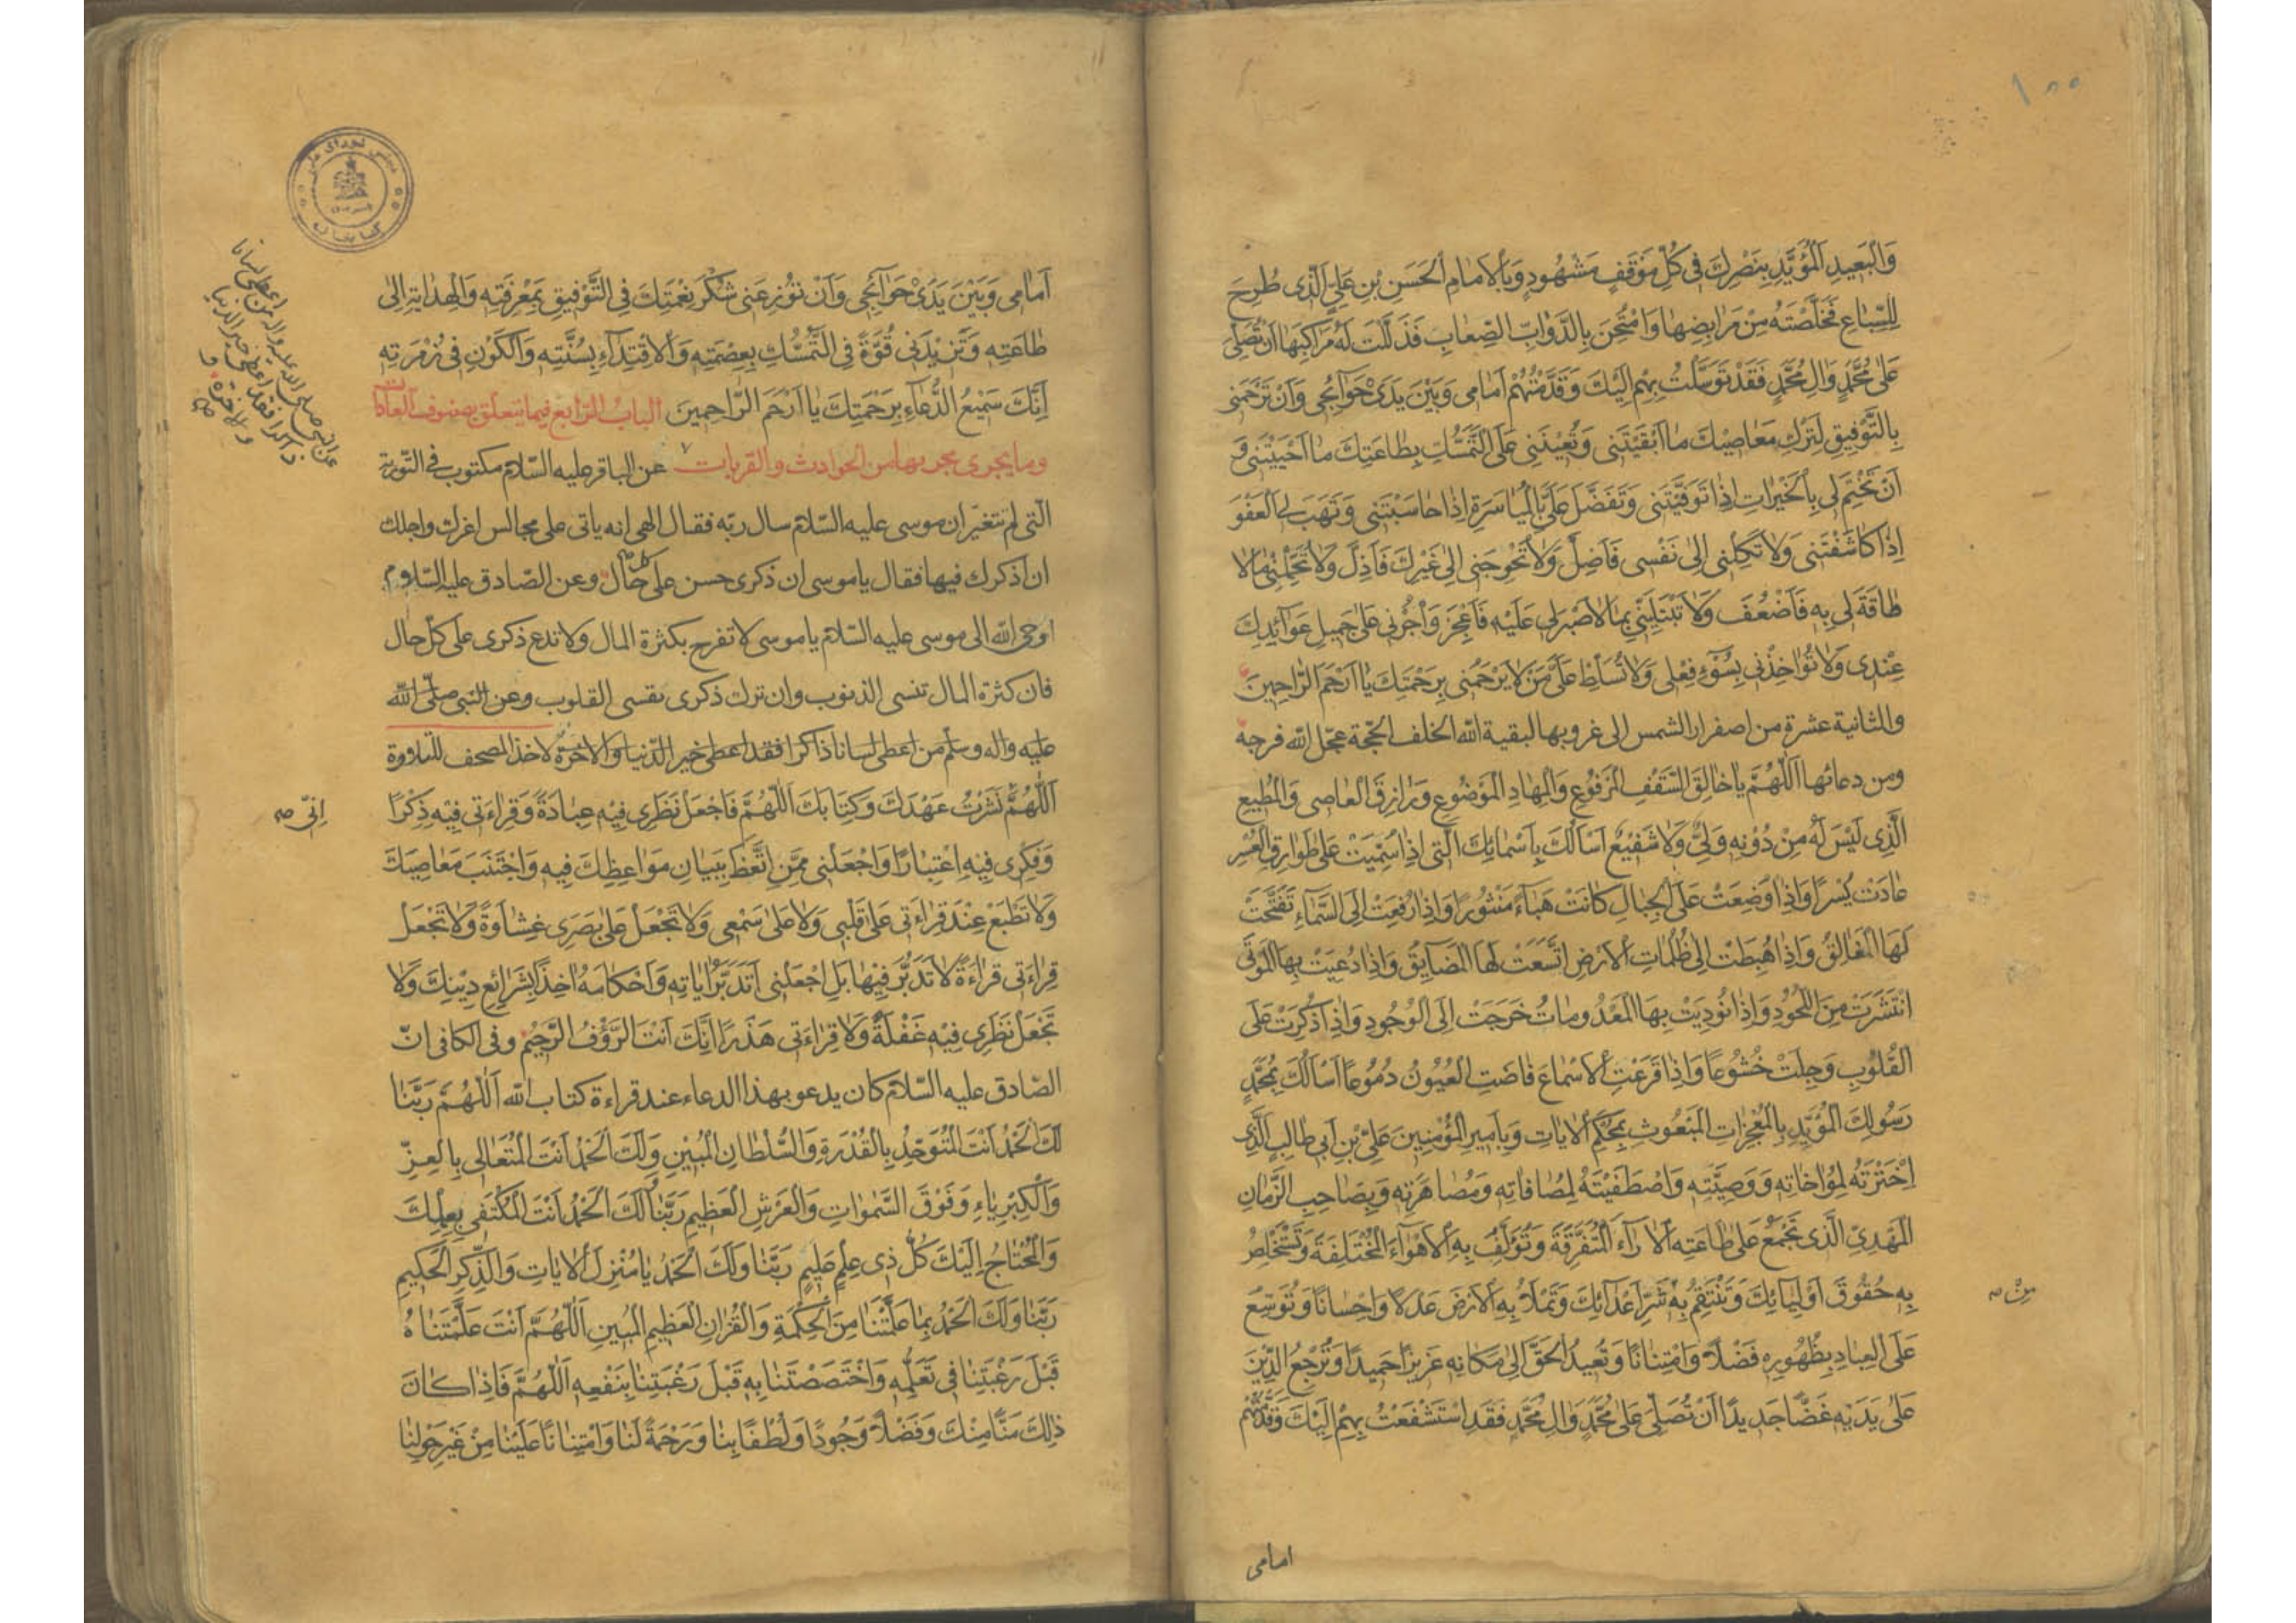 ١٥٥
وَالْبَعِيدِ الْمُؤَيَّدِ بِنَصْرِكَ فى كُلِّ مَوْقَفٍ مَشْهُودٍ وَبِالْاِمَامِ الْحَسَنِ بْنِ عَلِىٍّ الَّذِى طُرِحَ
لِلسِّبَاعِ فَخَلَّصْتَهُ مِنْ مَرَابِضِهَا وَامْتُحِنَ بِالدَّوَابِّ الصِّعَابِ فَذَلَّلْتَ لَهُ مَرَاكِبَهَا اَنْ تُصَلِّىَ
عَلٰى مُحَمَّدٍ وَالِ مُحَمَّدٍ فَقَدْ تَوَسَّلْتُ بِهِمْ اِلَيْكَ وَقَدَّمْتُهُمْ اَمَامِى وَبَيْنَ يَدَىْ حَوَآئِجِى وَاَنْ تَرْحَمَنِى
بِالتَّوْفِيقِ لِتَرْكِ مَعَاصِيْكَ مَا اَبْقَيْتَنِى وَتُعِيْنَنِى عَلَى التَّمَسُّكِ بِطَاعَتِكَ مَا اَحْيَيْتَنِى وَ
اَنْ تَخْتِمَ لِى بِالْخَيْرَاتِ اِذَا تَوَفَّيْتَنِى وَتَفَضَّلَ عَلَىَّ بِالْمُيَاسَرَةِ اِذَا حَاسَبْتَنِى وَتَهَبَ لِى الْعَفْوَ
اِذَا كَاشَفْتَنِى وَلَا تَكِلْنِى اِلٰى نَفْسِى فَاَضِلَّ وَلَا تُحْوِجَنِى اِلٰى غَيْرِكَ فَاَذِلَّ وَلَا تُحَمِّلْنِى مَا لَا
طَاقَةَ لِى بِهِ فَاَضْعُفَ وَلَا تَبْتَلِيَنِّى بِمَا لَا صَبْرَ لِى عَلَيْهِ فَاَعْجِزَ وَاَجْرِنِى عَلٰى جَمِيلِ عَوَآئِدِكَ
عِنْدِى وَلَا تُؤَاخِذْنِى بِسُوْءِ فِعْلِى وَلَا تُسَلِّطْ عَلَىَّ مَنْ لَا يَرْحَمُنِى بِرَحْمَتِكَ يَا اَرْحَمَ الرَّاحِمِينَ
والثانية عشرة من اصفرار الشمس الى غروبها لبقية الله الخلف الحجّة عجّل الله فرجه
ومن دعائها اَللّٰهُمَّ يَا خَالِقَ السَّقْفِ الْمَرْفُوعِ وَالْمِهَادِ الْمَوْضُوعِ وَرَازِقَ الْعَاصِى وَالْمُطِيعِ
الَّذِى لَيْسَ لَهُ مِنْ دُوْنِهِ وَلِىٌّ وَلَا شَفِيْعٌ اَسْاَلُكَ بِاَسْمَائِكَ الَّتِى اِذَا سُمِّيَتْ عَلٰى طَوَارِقِ الْعُسْرِ
عَادَتْ يُسْرًا وَاِذَا وُضِعَتْ عَلَى الْجِبَالِ كَانَتْ هَبَاءً مَنْثُورًا وَاِذَا رُفِعَتْ اِلَى السَّمَاءِ تَفَتَّحَتْ
لَهَا الْمَغَالِقُ وَاِذَا هُبِطَتْ اِلٰى ظُلُمَاتِ الْاَرْضِ اتَّسَعَتْ لَهَا الْمَضَايِقُ وَاِذَا دُعِيَتْ بِهَا الْمَوْتٰى
انْتَشَرَتْ مِنَ اللُّحُودِ وَاِذَا نُودِيَتْ بِهَا الْمَعْدُومَاتُ خَرَجَتْ اِلَى الْوُجُودِ وَاِذَا ذُكِرَتْ عَلَى
الْقُلُوبِ وَجِلَتْ خُشُوعًا وَاِذَا قَرَعَتِ الْاَسْمَاعَ فَاضَتِ الْعُيُونُ دُمُوعًا اَسْاَلُكَ بِمُحَمَّدٍ
رَسُولِكَ الْمُؤَيَّدِ بِالْمُعْجِزَاتِ الْمَبْعُوثِ بِمُحْكَمِ الْاٰيَاتِ وَبِاَمِيرِ الْمُؤْمِنِينَ عَلِىِّ بْنِ اَبِى طَالِبٍ الَّذِى
اخْتَرْتَهُ لِمُؤَاخَاتِهِ وَوَصِيَّتِهِ وَاصْطَفَيْتَهُ لِمُصَافَاتِهِ وَمُصَاهَرَتِهِ وَبِصَاحِبِ الزَّمَانِ
الْمَهْدِىِّ الَّذِى تَجْمَعُ عَلٰى طَاعَتِهِ الْاٰرَاءَ الْمُتَفَرِّقَةَ وَتُؤَلِّفُ بِهِ الْاَهْوَاءَ الْمُخْتَلِفَةَ وَتَسْتَخْلِصُ
بِهِ حُقُوقَ اَوْلِيَائِكَ وَتَنْتَقِمُ بِهِ شَرِّ اَعْدَائِكَ وَتَمْلَأُ بِهِ الْاَرْضَ عَدْلًا وَاِحْسَانًا وَتُوَسِّعُ
مِنْ صه
عَلَى الْعِبَادِ بِظُهُورِهِ فَضْلًا وَامْتِنَانًا وَتُعِيدُ الْحَقَّ اِلٰى مَكَانِهِ عَزِيزًا حَمِيدًا وَتُرْجِعُ الدِّيْنَ
عَلٰى يَدَيْهِ غَضًّا جَدِيدًا اَنْ تُصَلِّىَ عَلٰى مُحَمَّدٍ وَالِ مُحَمَّدٍ فَقَدِ اسْتَشْفَعْتُ بِهِمْ اِلَيْكَ وَقَدَّمْتُهُمْ
امامى
مجلس شوراى ملى
كتابخانه
اَمَامِى وَبَيْنَ يَدَىْ حَوَآئِجِى وَاَنْ تُوْزِعَنِى شُكْرَ نِعْمَتِكَ فِى التَّوْفِيقِ بِمَعْرِفَتِهِ وَالْهِدَايَةِ اِلٰى
طَاعَتِهِ وَتَزِيْدَنِى قُوَّةً فِى التَّمَسُّكِ بِعِصْمَتِهِ وَالْاِقْتِدَآءِ بِسُنَّتِهِ وَالْكَوْنِ فِى زُمْرَتِهِ
اِنَّكَ سَمِيْعُ الدُّعَآءِ بِرَحْمَتِكَ يَا اَرْحَمَ الرَّاحِمِينَ الباب الرّابع فيما يتعلّق بصنوف العادات
وما يجرى مجريها من الحوادث والقربات عن الباقر عليه السّلام مكتوب فى التّورية
الّتى لم تتغيّر ان موسى عليه السّلام سال ربّه فقال الهى انه ياتى على مجالس اعزك واجلك
ان اذكرك فيها فقال ياموسى ان ذكرى حسن على كل حال وعن الصّادق عليه السّلام
اوحى الله الى موسى عليه السّلام ياموسى لا تفرح بكثرة المال ولا تدع ذكرى على كلّ حال
فان كثرة المال تنسى الذنوب وان ترك ذكرى يقسى القلوب وعن النبى صلّى الله
عليه واله وسلّم من اعطى لسانا ذاكرا فقد اعطى خير الدّنيا والاخرة لاخذ المصحف للتلاوة
اَللّٰهُمَّ نَشَرْتُ عَهْدَكَ وَكِتَابَكَ اَللّٰهُمَّ فَاجْعَلْ نَظَرِى فِيْهِ عِبَادَةً وَقِرَاءَتِى فِيْهِ ذِكْرًا
اِنِّى صه
وَفِكْرِى فِيْهِ اعْتِبَارًا وَاجْعَلْنِى مِمَّنِ اتَّعَظَ بِبَيَانِ مَوَاعِظِكَ فِيهِ وَاجْتَنَبَ مَعَاصِيَكَ
وَلَا تَطْبَعْ عِنْدَ قِرَاءَتِى عَلٰى قَلْبِى وَلَا عَلٰى سَمْعِى وَلَا تَجْعَلْ عَلٰى بَصَرِى غِشَاوَةً وَلَا تَجْعَلْ
قِرَاءَتِى قِرَاءَةً لَا تَدَبُّرَ فِيْهَا بَلِ اجْعَلْنِى اَتَدَبَّرُ اٰيَاتِهِ وَاَحْكَامَهُ اٰخِذًا بِشَرَائِعِ دِيْنِكَ وَلَا
تَجْعَلْ نَظَرِى فِيْهِ غَفْلَةً وَلَا قِرَاءَتِى هَذَرًا اِنَّكَ اَنْتَ الرَّؤُفُ الرَّحِيْمُ وفى الكافى انّ
الصّادق عليه السّلام كان يدعو بهذا الدعاء عند قراءة كتاب الله اَللّٰهُمَّ رَبَّنَا
لَكَ الْحَمْدُ اَنْتَ الْمُتَوَحِّدُ بِالْقُدْرَةِ وَالسُّلْطَانِ الْمُبِيْنِ وَلَكَ الْحَمْدُ اَنْتَ الْمُتَعَالِى بِالْعِزِّ
وَالْكِبْرِيَاءِ وَفَوْقَ السَّمٰوَاتِ وَالْعَرْشِ الْعَظِيمِ رَبَّنَا وَلَكَ الْحَمْدُ اَنْتَ الْمُكْتَفِى بِعِلْمِكَ
وَالْمُحْتَاجُ اِلَيْكَ كُلُّ ذِى عِلْمٍ عَلِيْمٍ رَبَّنَا وَلَكَ الْحَمْدُ يَا مُنْزِلَ الْاٰيَاتِ وَالذِّكْرِ الْحَكِيمِ
رَبَّنَا وَلَكَ الْحَمْدُ بِمَا عَلَّمْتَنَا مِنَ الْحِكْمَةِ وَالْقُرْاٰنِ الْعَظِيمِ الْمُبِينِ اَللّٰهُمَّ اَنْتَ عَلَّمْتَنَاهُ
قَبْلَ رَغْبَتِنَا فِى تَعَلُّمِهِ وَاخْتَصَصْتَنَا بِهِ قَبْلَ رَغْبَتِنَا بِنَفْعِهِ اَللّٰهُمَّ فَاِذَا كَانَ
ذٰلِكَ مَنًّا مِنْكَ وَفَضْلًا وَجُودًا وَلُطْفًا بِنَا وَرَحْمَةً لَنَا وَامْتِنَانًا عَلَيْنَا مِنْ غَيْرِ حَوْلِنَا
عن النبى صلى الله عليه واله من اعطى لسانا
ذاكرا فقد اعطى خير الدنيا
والاخرة